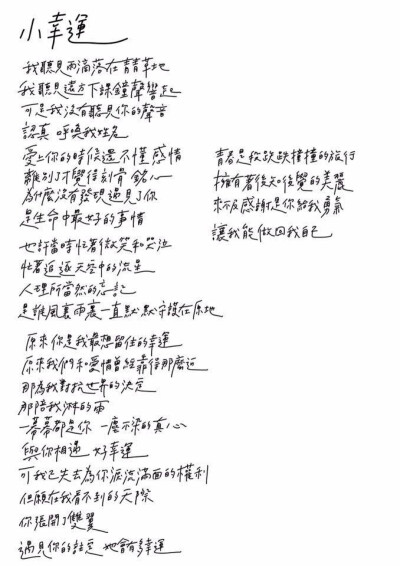 小幸運
我聽見雨滴落在青青草地
我聽見遠方下課鐘聲響起
可是我沒有聽見你的聲音
認真 呼喚我姓名
愛上你的時候還不懂感情
離別了才覺得刻骨 銘心
為什麼沒有發現遇見了你
是生命中最好的事情
也許當時忙著微笑和哭泣
忙著追逐天空中的流星
人理所當然的忘記
是誰風裏雨裏一直默默守護在原地
原來你是我最想留住的幸運
原來我們和愛情曾經靠得那麼近
那為我對抗世界的決定
那陪我淋的雨
一幕幕都是你 一塵不染的真心
與你相遇 好幸運
可我已失去為你淚流滿面的權利
但願在我看不到的天際
你張開了雙翼
遇見你的註定 她會有多幸運
青春是段跌跌撞撞的旅行
擁有著後知後覺的美麗
來不及感謝是你給我勇氣
讓我能做回我自己